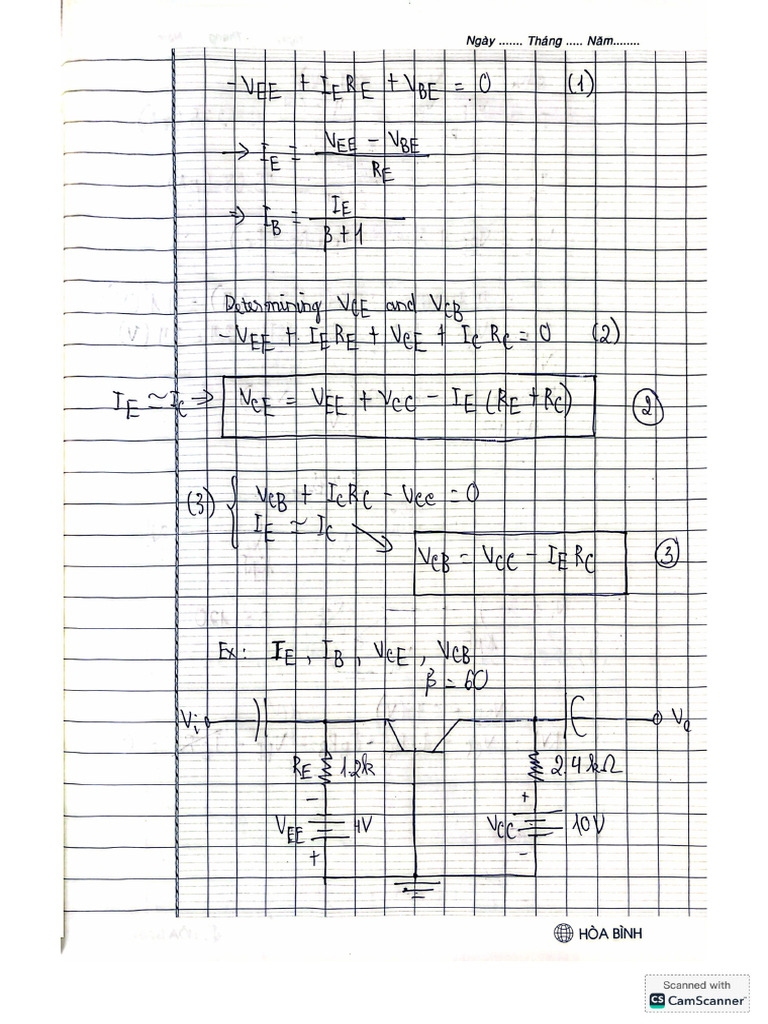 Ngày ....... Tháng ..... Năm........
-VEE + IE RE + VBE = 0 (1)
→ IE = (VEE - VBE) / RE
⇒ IB = IE / (β + 1)
Determining VCE and VCB
-VEE + IE RE + VCE + IC RC = 0 (2)
IE ≃ IC ⇒ VCE = VEE + VCC - IE (RE + RC) ②
(3) { VCB + IC RC - VCC = 0
IE ≃ IC
VCB = VCC - IE RC ③
Ex: IE, IB, VCE, VCB
β = 60
Vi
RE 1.2k
2.4 kΩ
-
+
VEE 4V
VCC 10V
+
-
HÒA BÌNH
Scanned with
CS CamScanner